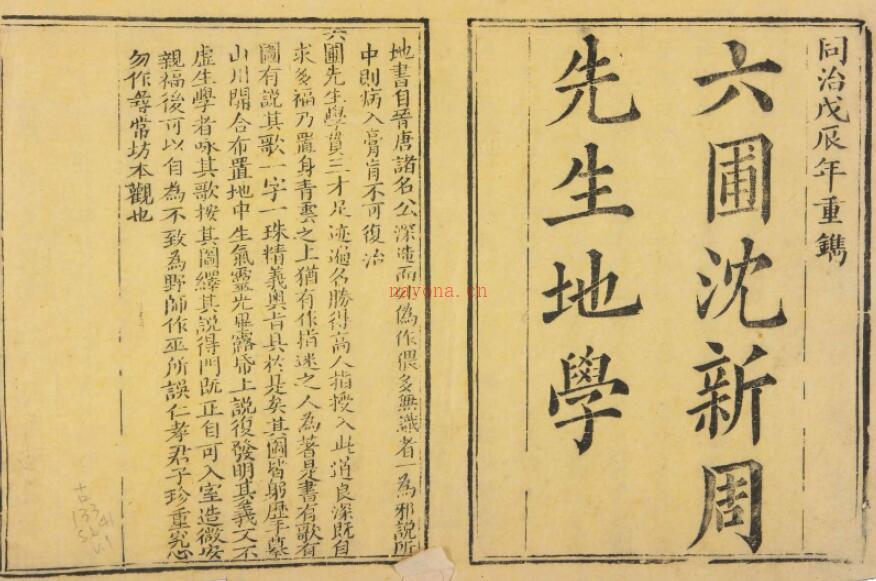 同治戊辰年重鐫
六圃沈新周
先生地學
地書自晉唐諸名公深造而外偽作偎多無識者一為邪說所
中則病入膏肓不可復治
六圃先生學貫三才足迹遍名勝得高人指授入此道良深既自
求多福乃置身青雲之上猶有作指迷之人為著是書有歌有
圖有說其歌一字一珠精義奧旨具於是矣其圖皆躬歷平墓
山川開合布置地中生氣靈光畢露帋上說復發明其義又不
虛生學者咏其歌按其圖繹其說得門既正自可入室造微安
親福後可以自為不致為野師作巫所誤仁孝君子珍重究心
勿作尋常坊本觀也
nayona.cn
古
133
41
v.1